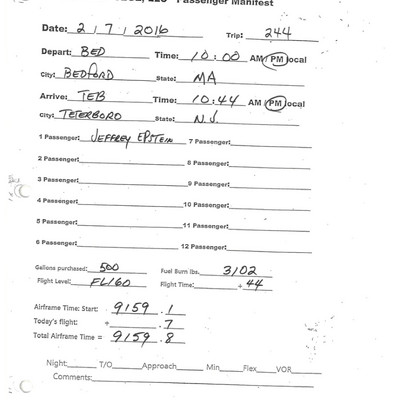 LLC Passenger Manifest
Date: 2 / 7 / 2016 Trip: 244
Depart: BED Time: 10:00 AM/PM local
City: BEDFORD State: MA
Arrive: TEB Time: 10:44 AM PM local
City: TETERBORO State: N.J.
1 Passenger: JEFFREY EPSTEIN 7 Passenger:
2 Passenger: 8 Passenger:
3 Passenger: 9 Passenger:
4 Passenger: 10 Passenger:
5 Passenger: 11 Passenger:
6 Passenger: 12 Passenger:
Gallons purchased: 500 Fuel Burn lbs. 3102
Flight Level: FL160 Flight Time: + 44
Airframe Time: Start: 9159 . 1
Today's flight: + . 7
Total Airframe Time = 9159 . 8
Night: T/O Approach Min Flex VOR
Comments: